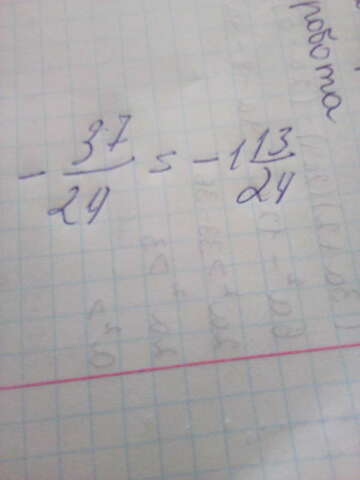 робота
- 37/24 = -1 13/24